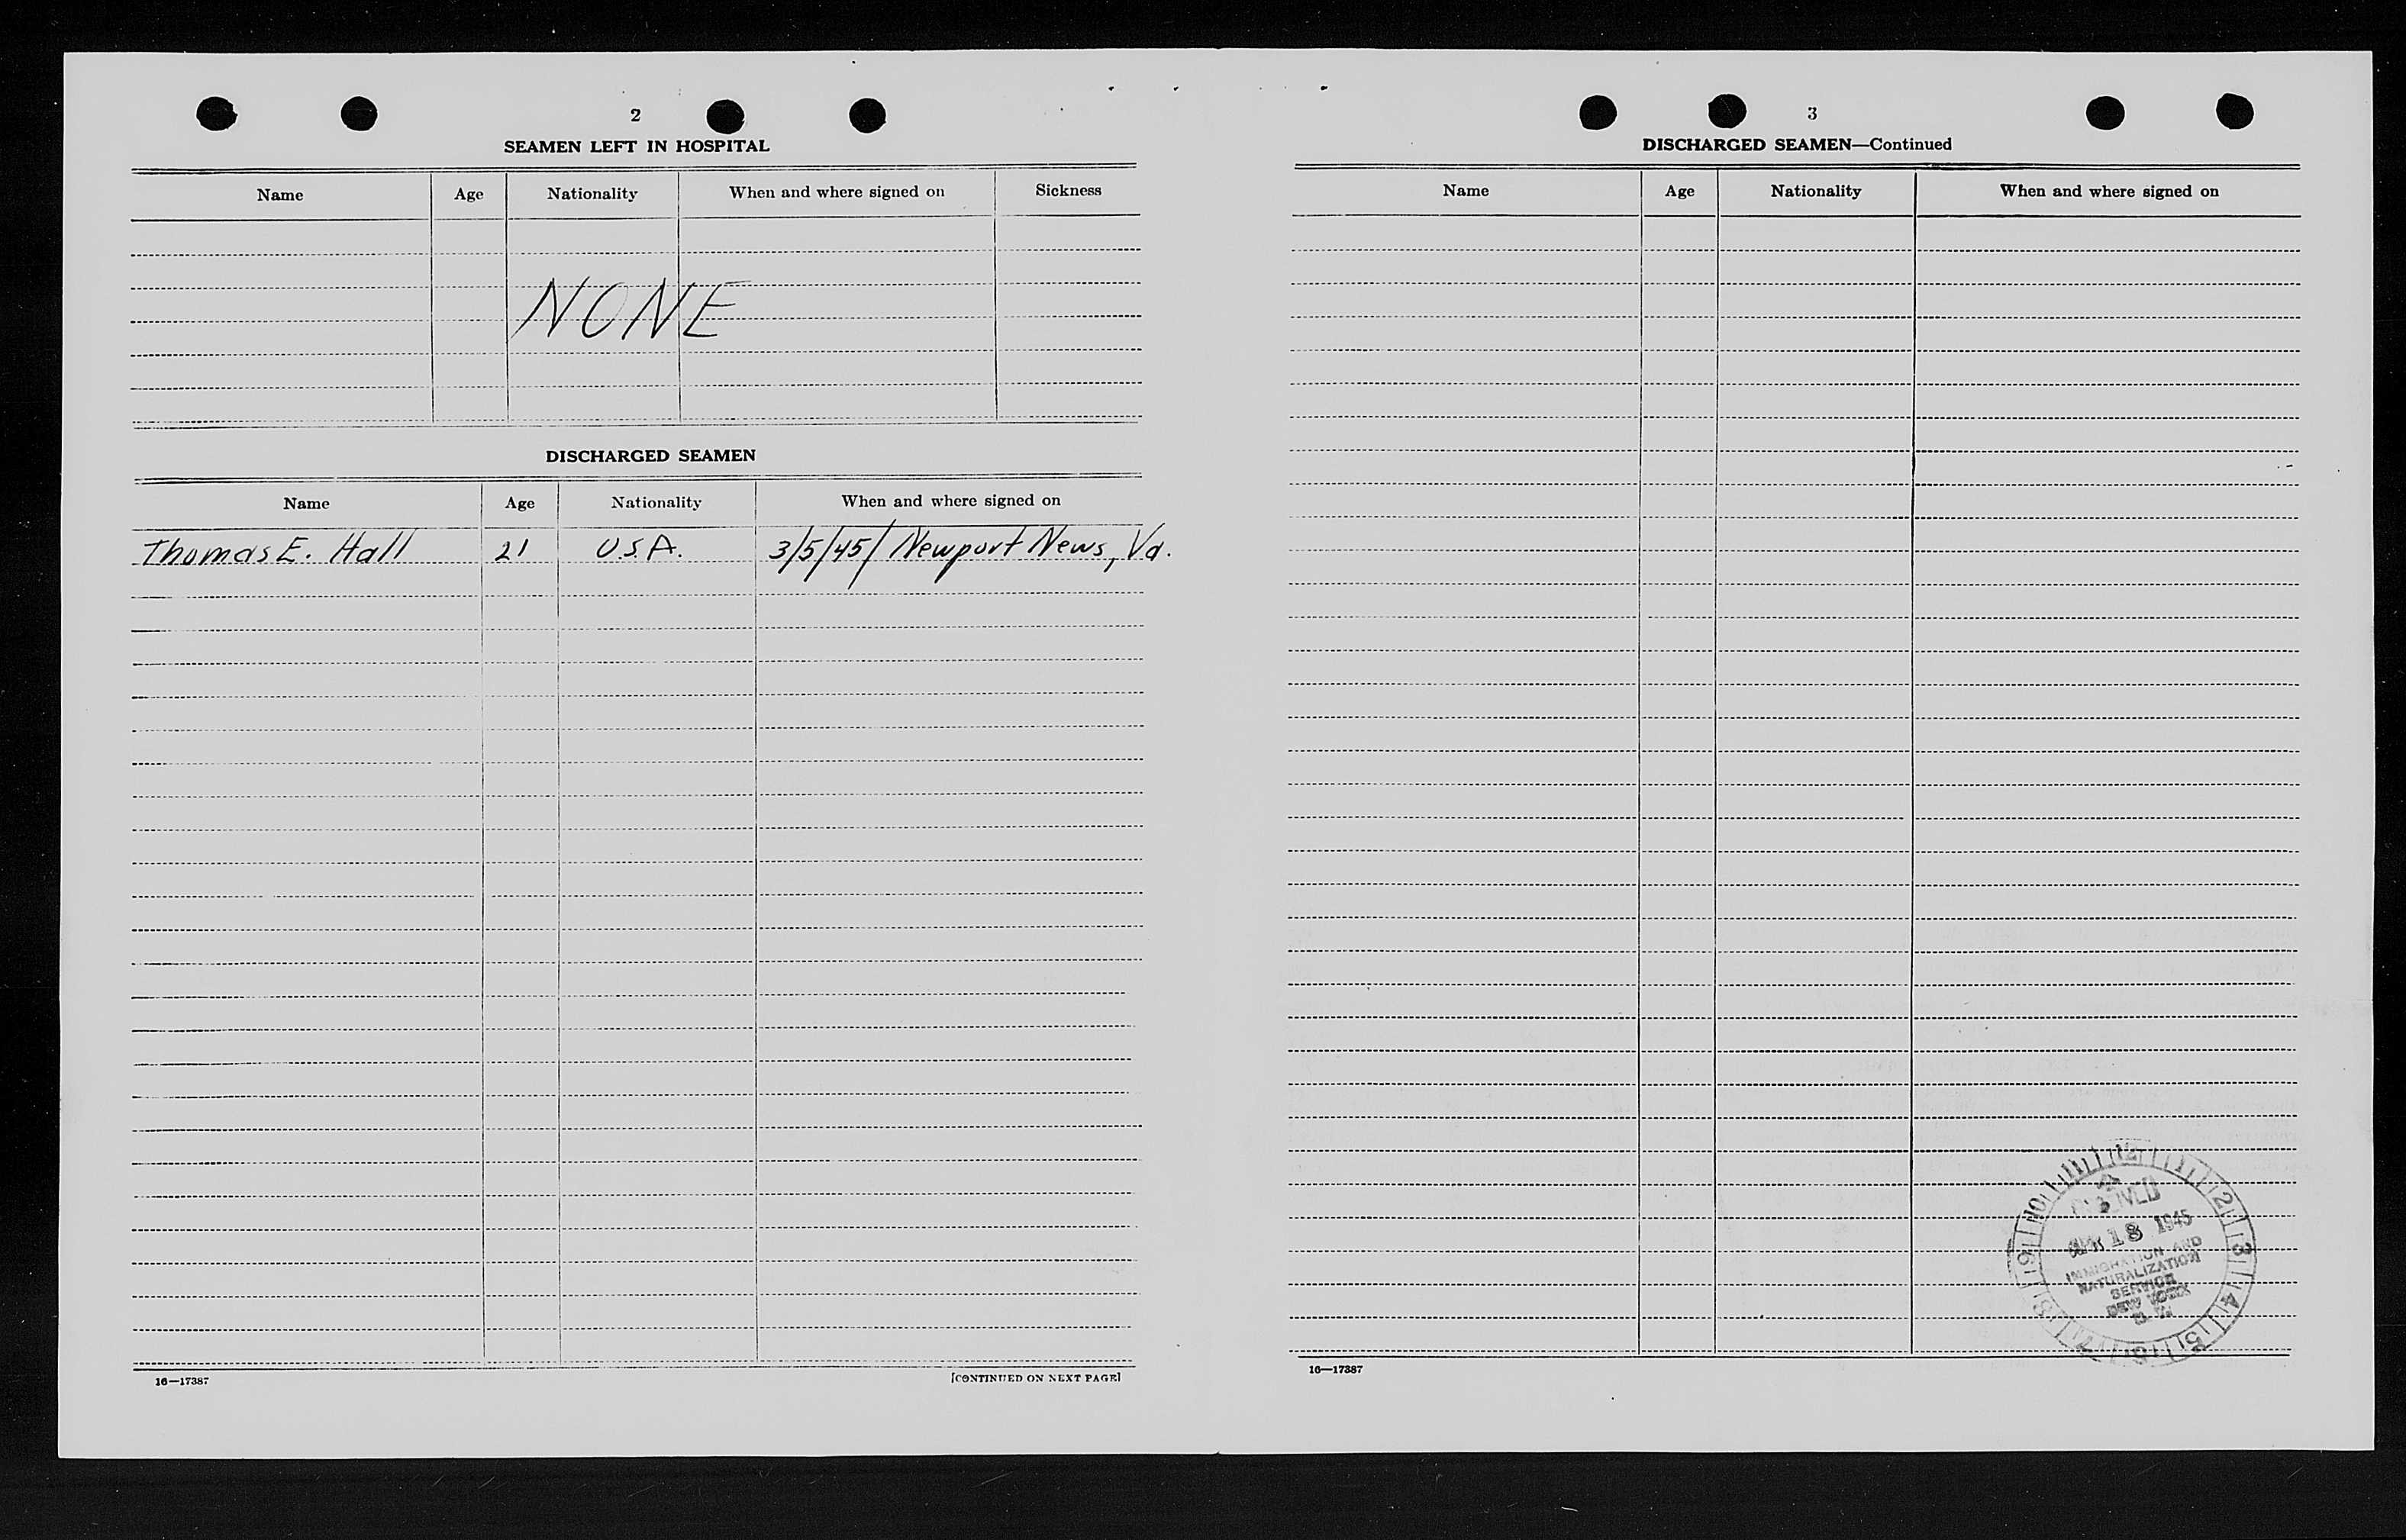 2
SEAMEN LEFT IN HOSPITAL
Name Age Nationality When and where signed on Sickness
NONE
DISCHARGED SEAMEN
Name Age Nationality When and where signed on
Thomas E. Hall 21 U.S.A. 3/5/45/ Newport News, Va.
16—17387
[CONTINUED ON NEXT PAGE]
3
DISCHARGED SEAMEN—Continued
Name Age Nationality When and where signed on
12 1 2 3 4 5 6 7 8 9 10 11
18 1945
IMMIGRATION AND
NATURALIZATION
SERVICE
NEW YORK
16—17387